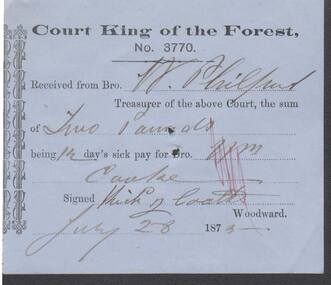 Court King of the Forest,
No. 3770.
Received from Bro. W. Philpot
Treasurer of the above Court, the sum
of Two Pounds
being 12 day's sick pay for Bro. Wm
Cooke
Signed
Woodward.
July 28 187